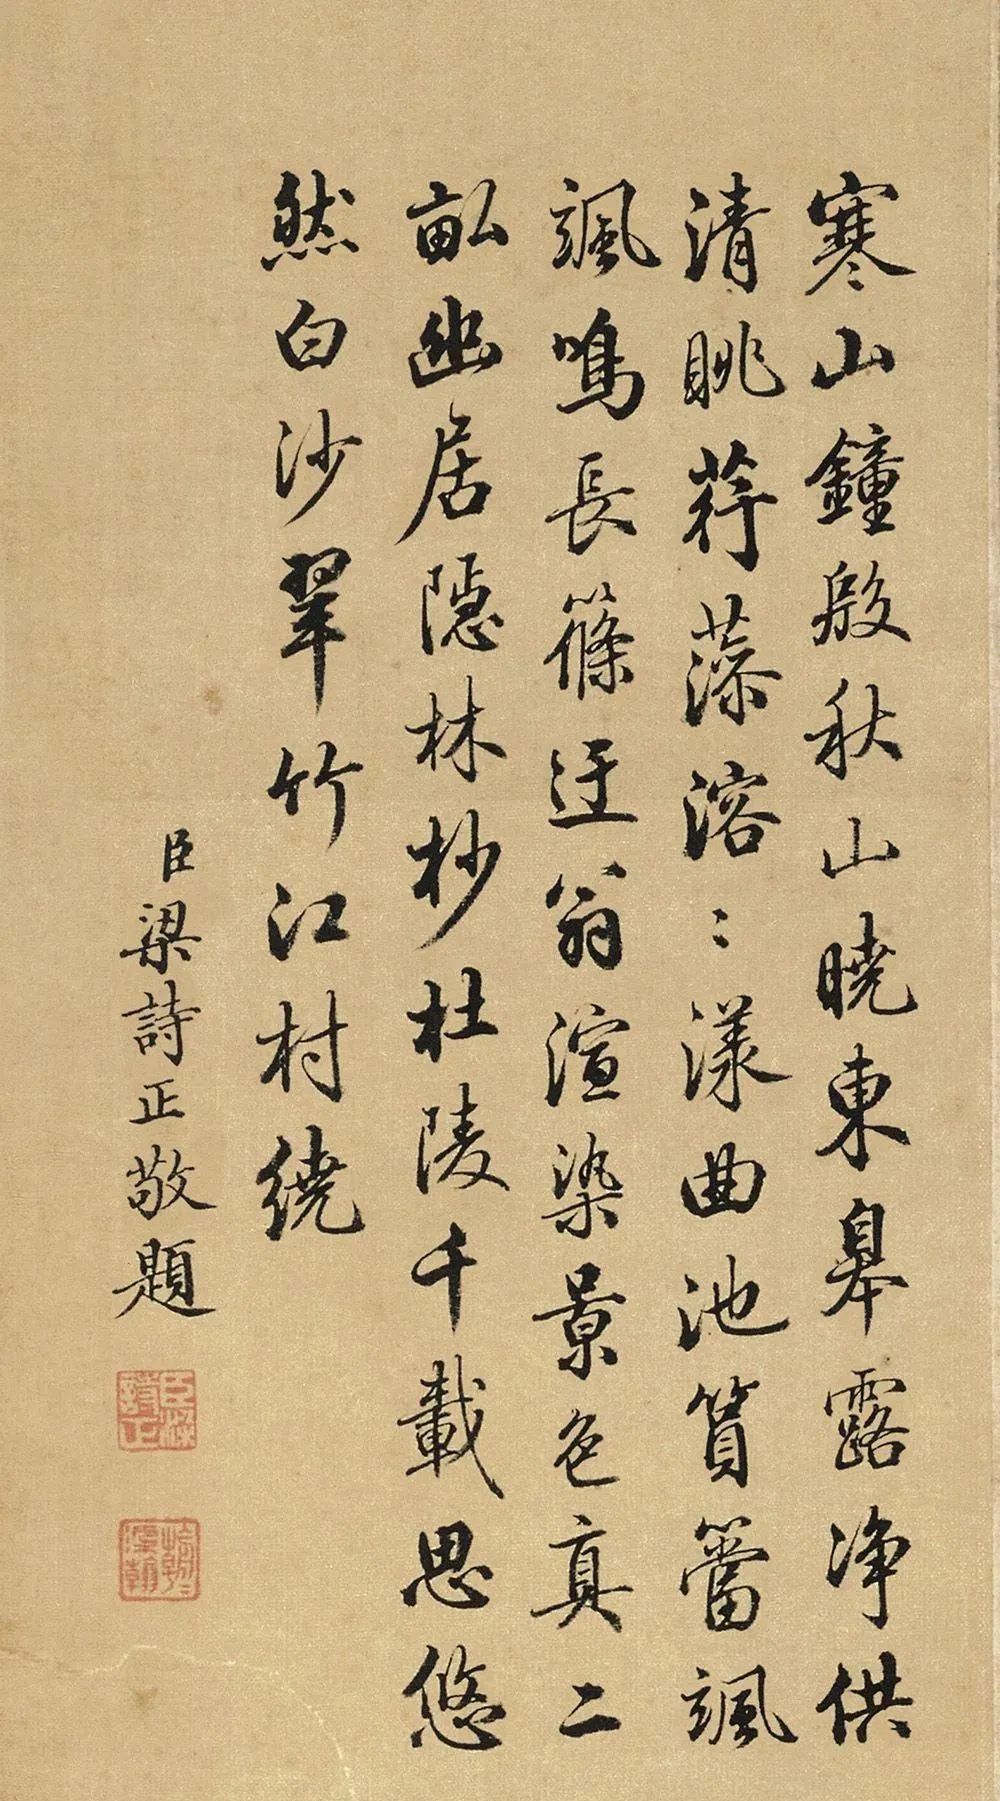 寒山鐘殷秋山曉東皋露淨供
清眺荇藻溶〻漾曲池篔簹颯
颯鳴長篠迂翁渲染景色真二
畝幽居隱林杪杜陵千載思悠
然白沙翠竹江村繞
臣梁詩正敬題
臣梁詩正
朝〻染翰